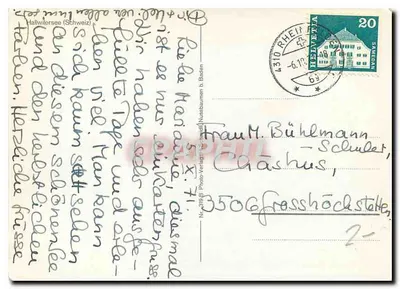 Hallwilersee (Schweiz)
5.X.71.
Liebe Melanie, diesmal
ist es nur ein Kartengruss.
Wir haben sehr ausge-
füllte Tage und erle-
ben viel. Man kann
sich kaum satt sehen
an diesem schönen See
und den herbstlichen
Farben. Herzliche Grüsse
4310 RHEINFELDEN
HELVETIA
20
SAMEDAN
Frau M. Bühlmann-
Schuler,
Chäshus,
3506 Grosshöchstetten.
2-